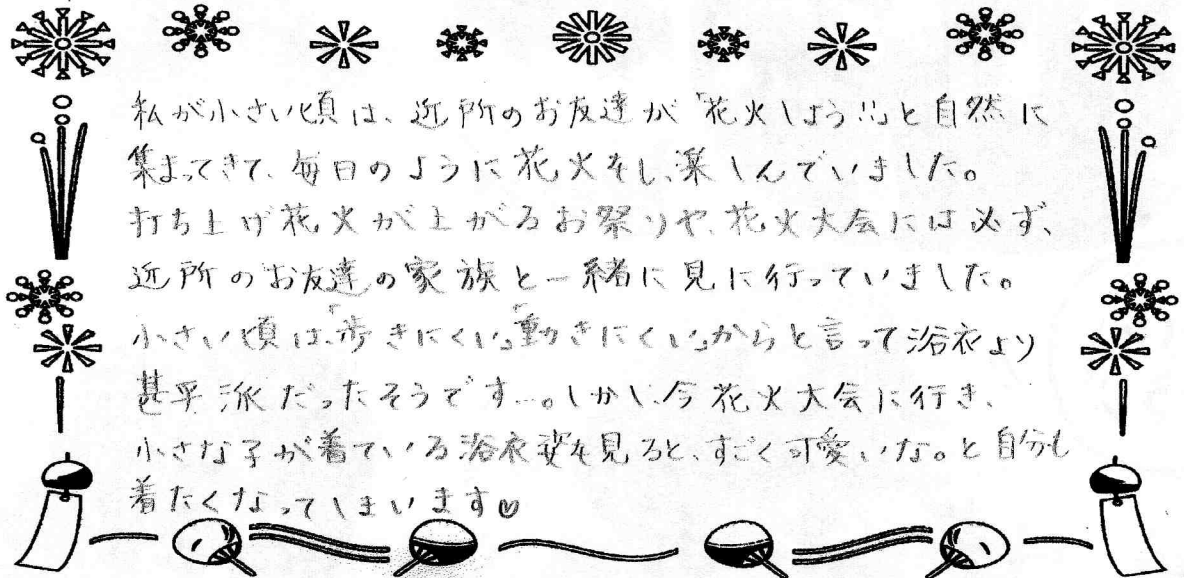 私が小さい頃は、近所のお友達が「花火しよう!!」と自然に
集まってきて、毎日のように花火をし、楽しんでいました。
打ち上げ花火が上がるお祭りや、花火大会には必ず、
近所のお友達の家族と一緒に見に行っていました。
小さい頃は、「歩きにくい」「動きにくい」からと言って浴衣より
甚平派だったそうです…。しかし、今花火大会に行き、
小さな子が着ている浴衣姿を見ると、すごく可愛いな。と自分も
着たくなってしまいます♡